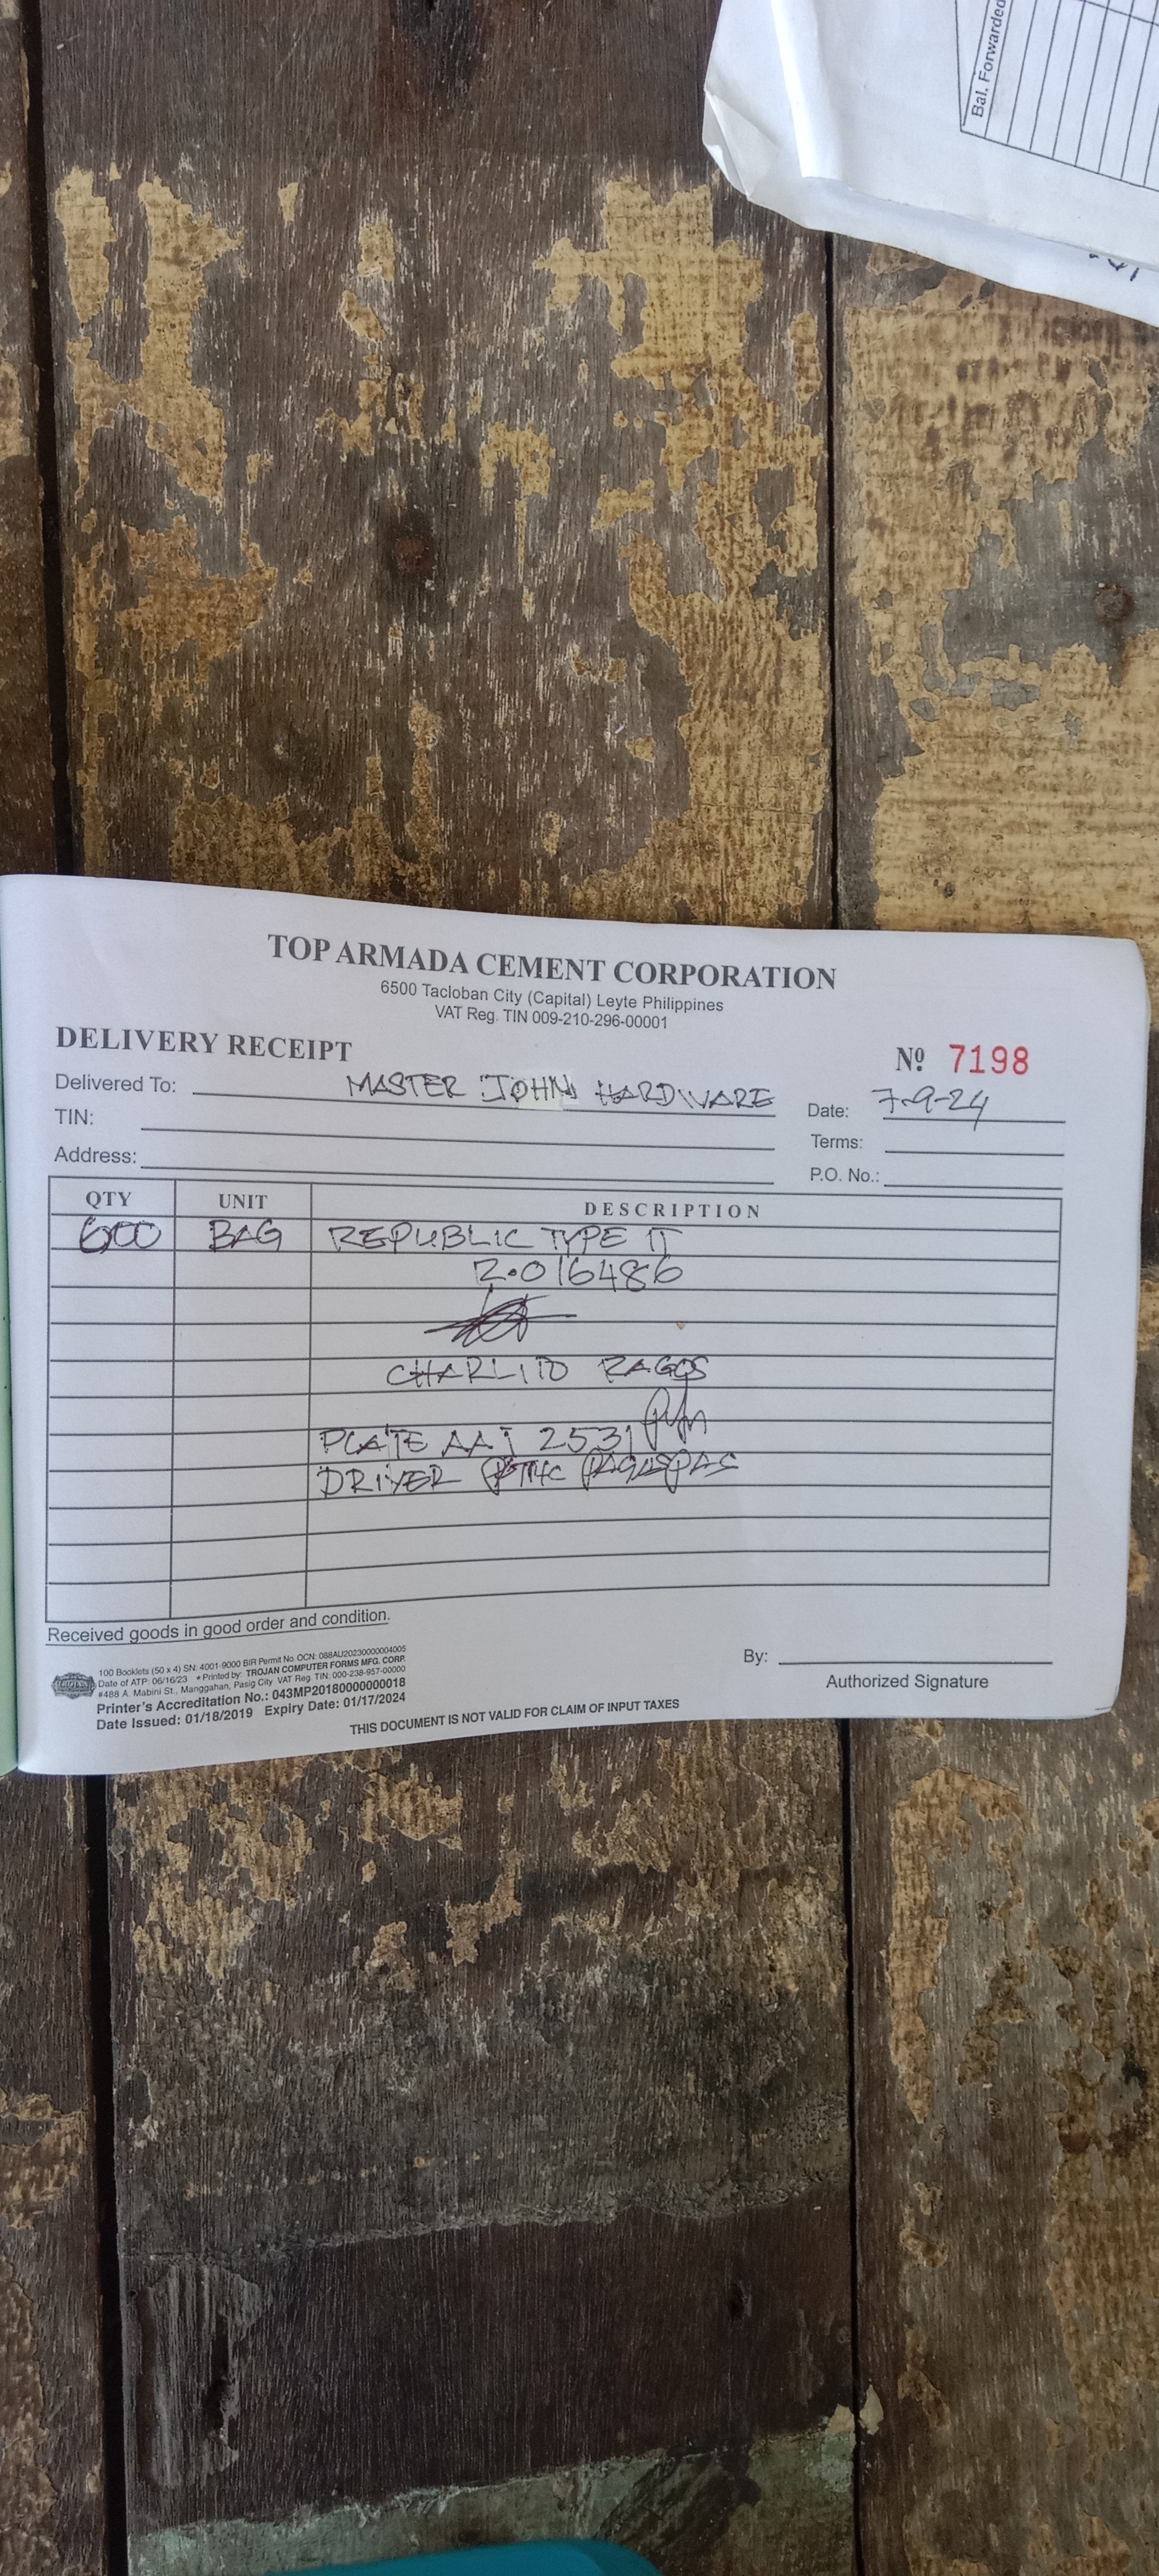 Bal. Forwarded
TOP ARMADA CEMENT CORPORATION
6500 Tacloban City (Capital) Leyte Philippines
VAT Reg. TIN 009-210-296-00001
DELIVERY RECEIPT
Nº 7198
Delivered To: MASTER JOHN HARDWARE
Date: 7-9-24
TIN:
Terms:
Address:
P.O. No.:
QTY UNIT DESCRIPTION
600 BAG REPUBLIC TYPE IT
2.016486
CHARLITO RAGOS
PLATE AAJ 2531
DRIVER
Received goods in good order and condition.
By:
Authorized Signature
100 Booklets (50 x 4) SN: 4001-9000 BIR Permit No. OCN: 088AU20230000004005
Date of ATP: 06/16/23 * Printed by: TROJAN COMPUTER FORMS MFG. CORP.
#488 A. Mabini St., Manggahan, Pasig City VAT Reg. TIN: 000-238-957-00000
Printer's Accreditation No.: 043MP20180000000018
Date Issued: 01/18/2019 Expiry Date: 01/17/2024
THIS DOCUMENT IS NOT VALID FOR CLAIM OF INPUT TAXES